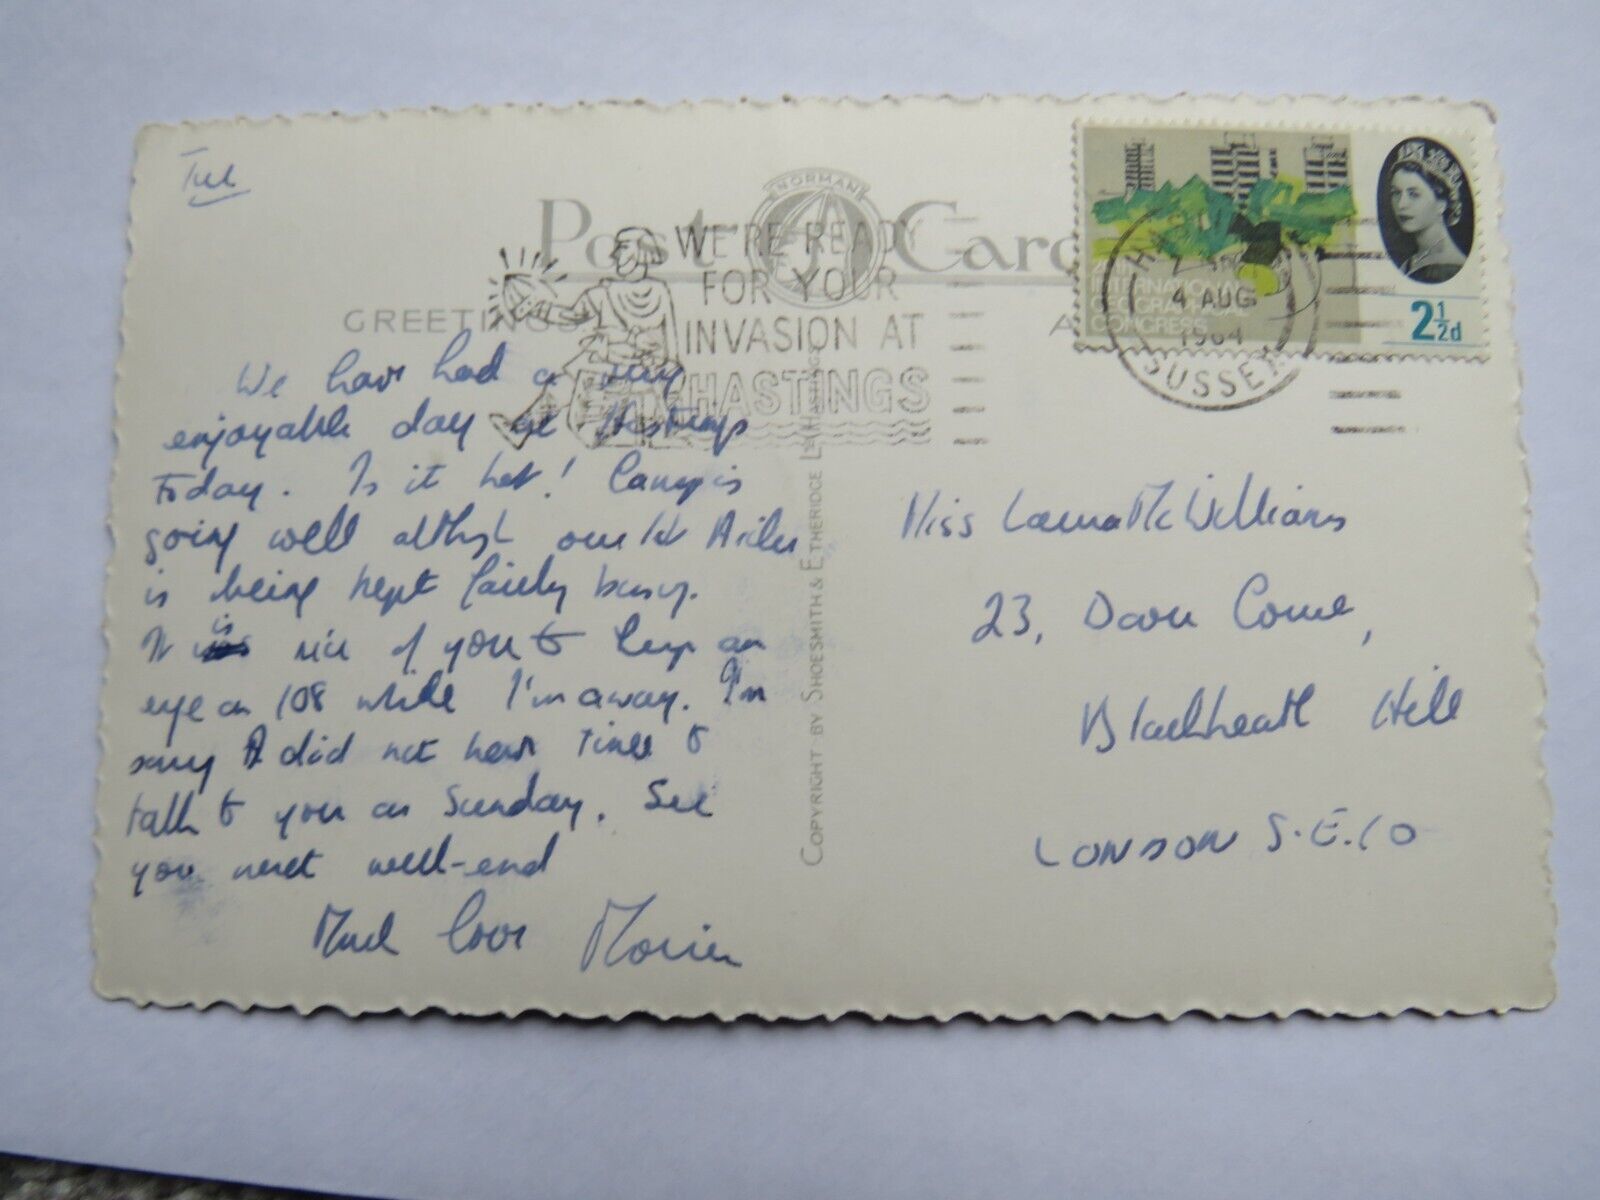 Tue
Post Card
NORMAN
GREETINGS
WE'RE READY
FOR YOUR
INVASION AT
HASTINGS
20TH
INTERNATIONAL
GEOGRAPHICAL
CONGRESS
2½d
4 AUG
1964
SUSSEX
We have had a very
enjoyable day at Hastings
Today. Is it hot! Camp is
going well although our 1st Aider
is being kept fairly busy.
It is nice of you to keep an
eye on 108 while I'm away. I'm
sorry I did not have time to
talk to you on Sunday. See
you next week-end
Much love
COPYRIGHT BY SHOESMITH & ETHERIDGE LTD HASTINGS
Miss McWilliams
23,
Blackheath Hill
LONDON S.E.10